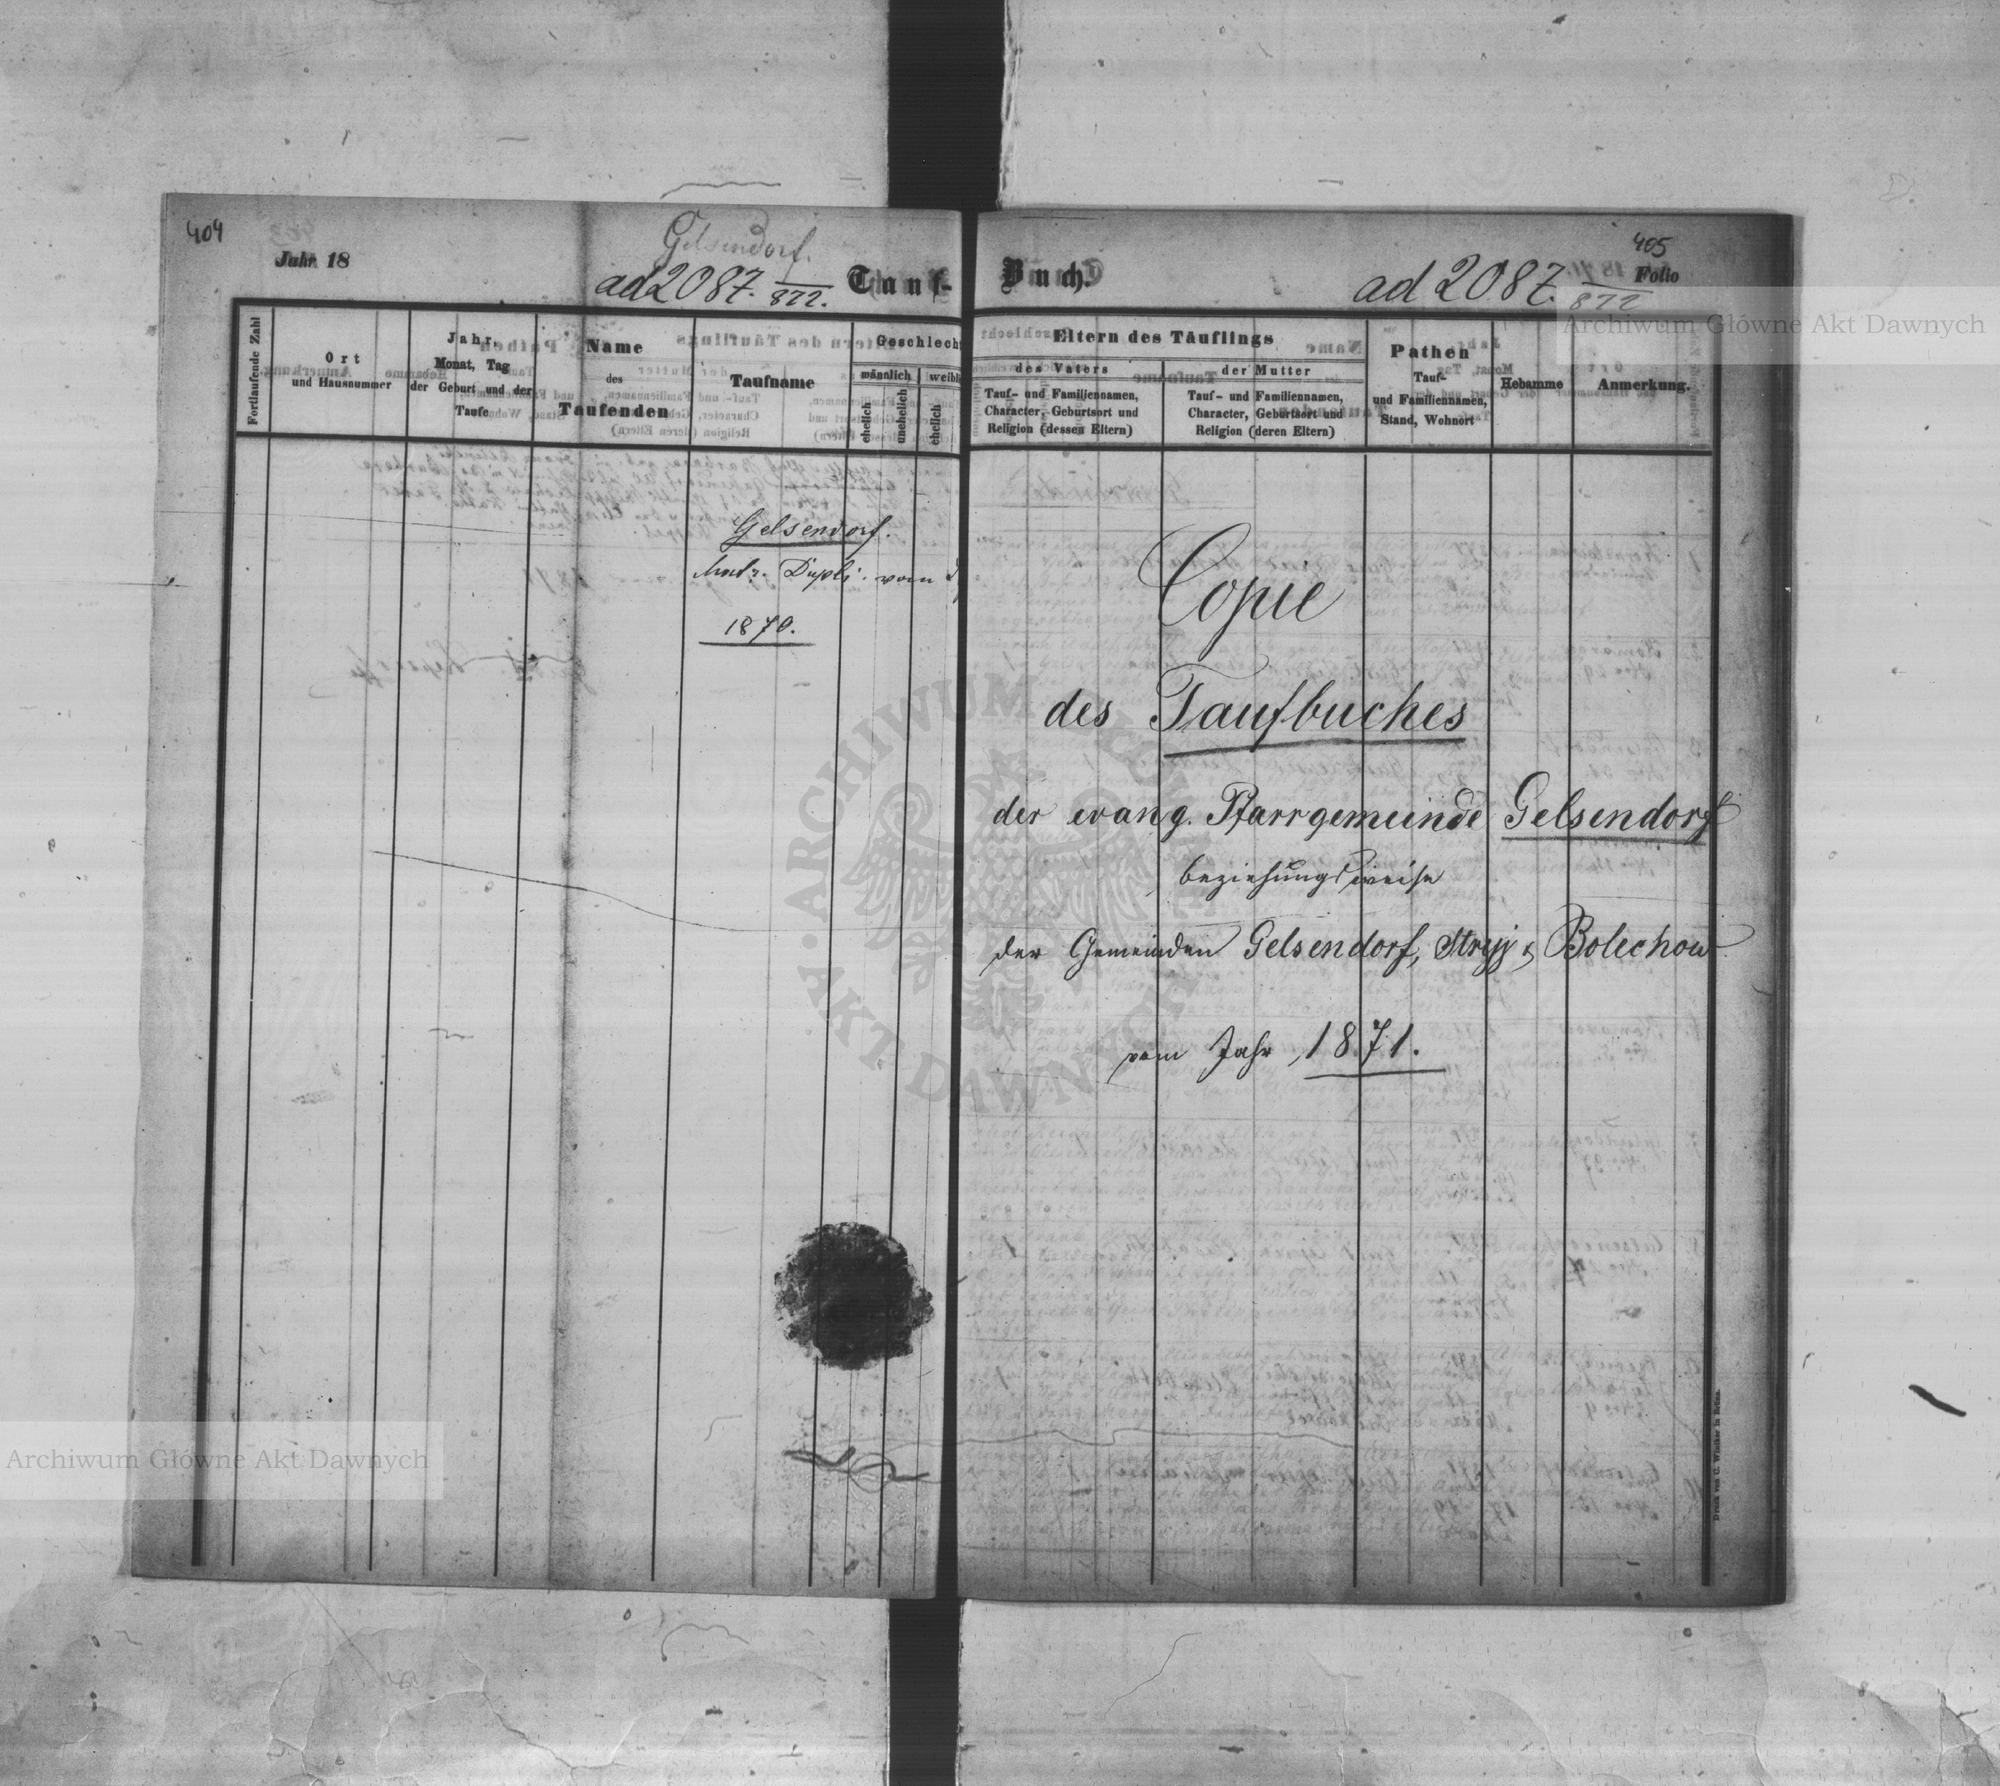 404
Jahr 18
Gelsendorf.
ad 2087. / 872.
Tauf-
Fortlaufende Zahl
Ort
und Hausnummer
Jahr,
Monat, Tag
der Geburt und der
Taufe
Name
des
Taufenden
Taufname
Geschlecht
männlich
weibli
ehelich
unehelich
ehelich
Gelsendorf.
Matr. Dupli. vom
1870.
405
Buch.
ad 2087. / 872
Folio
Eltern des Täuflings
des Vaters
Tauf- und Familiennamen,
Character, Geburtsort und
Religion (dessen Eltern)
der Mutter
Tauf- und Familiennamen,
Character, Geburtsort und
Religion (deren Eltern)
Pathen
Tauf-
und Familiennamen,
Stand, Wohnort
Hebamme
Anmerkung.
Copie
des Taufbuches
der evang. Pfarrgemeinde Gelsendorf
beziehungsweise
der Gemeinden Gelsendorf, Stryj & Bolechow
vom Jahr 1871.
Druck von C. Winiker in Brünn.
Archiwum Główne Akt Dawnych
Archiwum Główne Akt Dawnych
ARCHIWUM GŁÓWNE AKT DAWNYCH